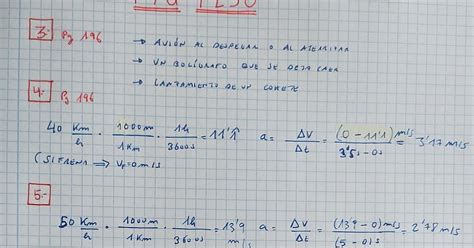 F y Q 1º ESO
3.- Pg 196 → AVIÓN AL DESPEGAR O AL ATERRIZAR
→ UN BOLÍGRAFO QUE SE DEJA CAER
→ LANZAMIENTO DE UN COHETE
4.- Pg 196
40 Km/h · 1000m/1Km · 1h/3600s = 11'1̂ a = ΔV/Δt = (0-11'1)m/s / 3'5s-0s = 3'17 m/s
(SI FRENA ⇒ VF=0m/s)
5.-
50 Km/h · 1000m/1Km · 1h/3600s = 13'9 m/s a = ΔV/Δt = (13'9-0)m/s / (5-0)s = 2'78 m/s